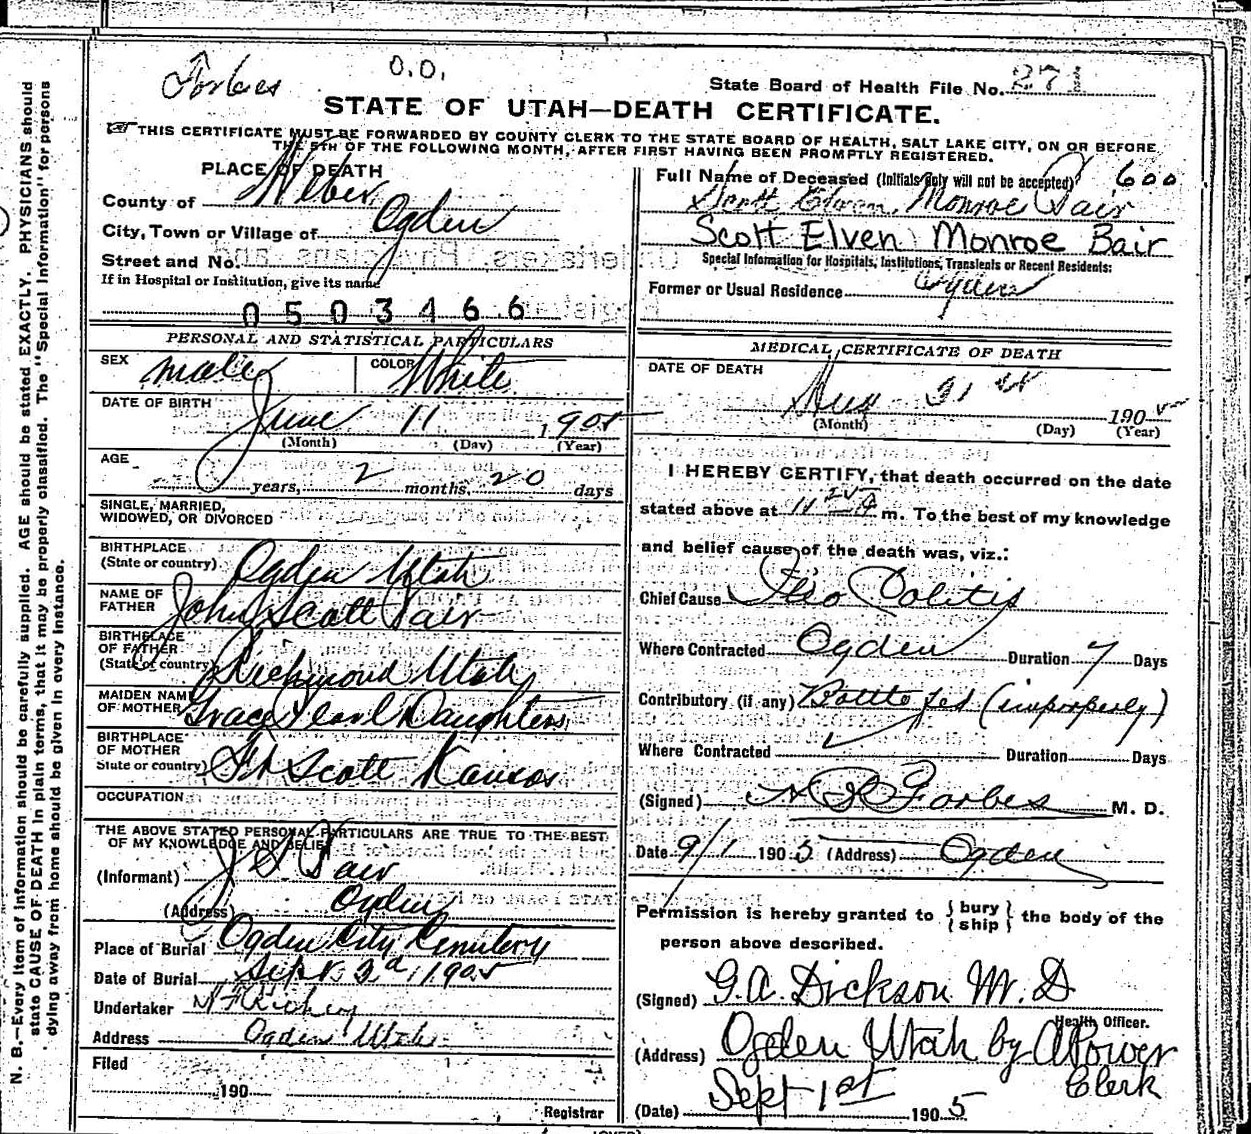 Forbes
O.O.
State Board of Health File No. 271
STATE OF UTAH—DEATH CERTIFICATE.
THIS CERTIFICATE MUST BE FORWARDED BY COUNTY CLERK TO THE STATE BOARD OF HEALTH, SALT LAKE CITY, ON OR BEFORE
THE 5TH OF THE FOLLOWING MONTH, AFTER FIRST HAVING BEEN PROMPTLY REGISTERED.
PLACE OF DEATH
County of Weber
City, Town or Village of Ogden
Street and No.
If in Hospital or Institution, give its name
0503466
Full Name of Deceased (Initials only will not be accepted) 600
Scott Elven Monroe Bair
Scott Elven Monroe Bair
Special Information for Hospitals, Institutions, Transients or Recent Residents:
Former or Usual Residence Ogden
PERSONAL AND STATISTICAL PARTICULARS
SEX male COLOR White
DATE OF BIRTH
June 11 1905
(Month) (Day) (Year)
AGE
years, 2 months, 20 days
SINGLE, MARRIED,
WIDOWED, OR DIVORCED
BIRTHPLACE
(State or country) Ogden Utah
NAME OF
FATHER John Scott Bair
BIRTHPLACE
OF FATHER
(State or country) Richmond Utah
MAIDEN NAME
OF MOTHER Grace Pearl Daughters
BIRTHPLACE
OF MOTHER
State or country) Ft Scott Kansas
OCCUPATION
THE ABOVE STATED PERSONAL PARTICULARS ARE TRUE TO THE BEST
OF MY KNOWLEDGE AND BELIEF
(Informant) J. S. Bair
(Address) Ogden
Place of Burial Ogden City Cemetery
Date of Burial Sept 2d, 1905
Undertaker
Address Ogden Utah
Filed
190
Registrar
MEDICAL CERTIFICATE OF DEATH
DATE OF DEATH
Aug 31st 1905
(Month) (Day) (Year)
I HEREBY CERTIFY, that death occurred on the date
stated above at 11 A m. To the best of my knowledge
and belief cause of the death was, viz.:
Chief Cause Ileo Colitis
Where Contracted Ogden Duration 7 Days
Contributory (if any) Bottle fed (improperly)
Where Contracted Duration Days
(Signed) Forbes M. D.
Date 9/1 1905 (Address) Ogden
Permission is hereby granted to { bury
ship } the body of the
person above described.
(Signed) G. A. Dickson M. D
Health Officer.
(Address) Ogden Utah by A Power
Clerk
(Date) Sept 1st 1905
N. B.—Every item of information should be carefully supplied. AGE should be stated EXACTLY. PHYSICIANS should
state CAUSE OF DEATH in plain terms, that it may be properly classified. The "Special Information" for persons
dying away from home should be given in every instance.